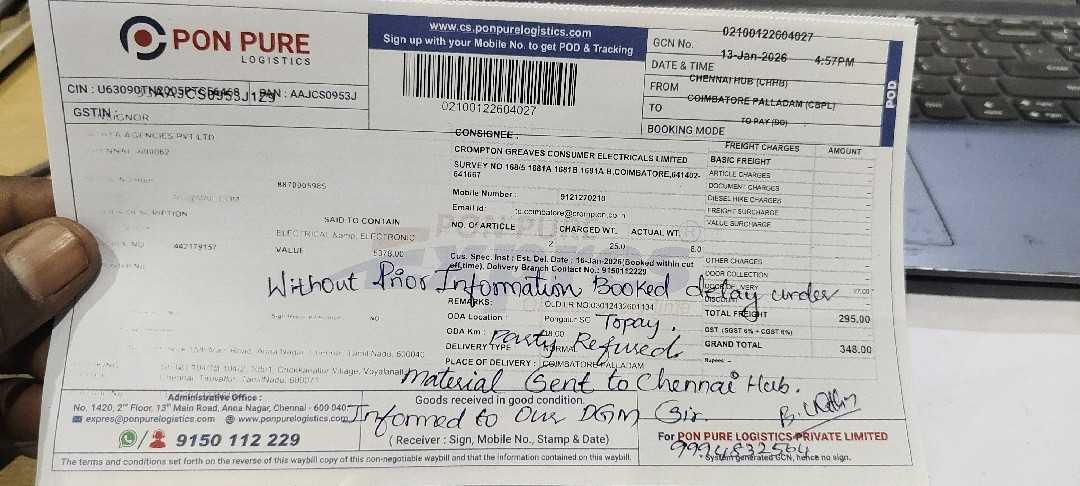 PON PURE
LOGISTICS
www.cs.ponpurelogistics.com
Sign up with your Mobile No. to get POD & Tracking
02100122604027
GCN No. 02100122604027
DATE & TIME 13-Jan-2026 4:57PM
FROM CHENNAI HUB (CHHB)
TO COIMBATORE PALLADAM (CBPL)
BOOKING MODE TO PAY (DD)
POD
CIN : PAN : AAJCS0953J
GSTIN
AGENCIES PVT LTD
8870005985
SAID TO CONTAIN
ELECTRICAL &amp; ELECTRONIC
442179157
VALUE 5376.00
NO
CONSIGNEE :
CROMPTON GREAVES CONSUMER ELECTRICALS LIMITED
SURVEY NO 168/5 1681A 1681B 1691A B,COIMBATORE,641402-
641667
Mobile Number : 9121270210
Email id:
NO. OF ARTICLE CHARGED WT. ACTUAL WT.
2 25.0 6.0
Cus. Spec. Inst : Est. Del. Date : 16-Jan-2026(Booked within cut
off time), Delivery Branch Contact No.: 9150112229
FREIGHT CHARGES AMOUNT
BASIC FREIGHT
ARTICLE CHARGES
DOCUMENT CHARGES
DIESEL HIKE CHARGES
FREIGHT SURCHARGE
VALUE SURCHARGE
OTHER CHARGES
DOOR COLLECTION
DOOR DELIVERY
DISCOUNT
TOTAL FREIGHT 295.00
GST (SGST 6% + CGST 6%)
GRAND TOTAL 348.00
Rupees
Without Prior Information Booked delay under
REMARKS: OLD LR NO:03012432601134
ODA Location : SO Topay.
ODA Km :
Party Refused
DELIVERY TYPE NORMAL
PLACE OF DELIVERY : COIMBATORE PALLADAM
Material Sent to Chennai Hub.
Goods received in good condition.
Informed to Our DGM Sir.
( Receiver : Sign, Mobile No., Stamp & Date)
Administrative Office :
No. 1420, 2nd Floor, 13th Main Road, Anna Nagar, Chennai - 600 040
expres@ponpurelogistics.com www.ponpurelogistics.com
9150 112 229
For PON PURE LOGISTICS PRIVATE LIMITED
9994832564
System generated GCN, hence no sign.
The terms and conditions set forth on the reverse of this waybill copy of this non-negotiable waybill and that the information contained on this waybill.